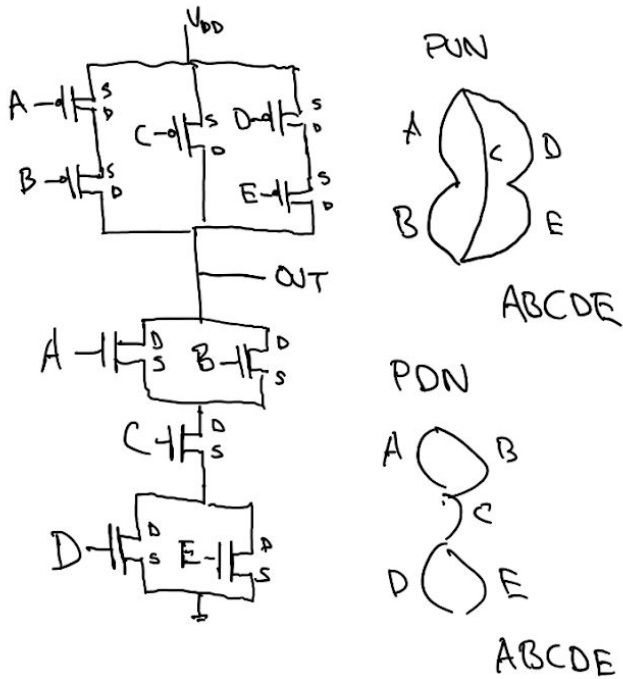 VDD
A S D
B S D
C S D
D S D
E S D
OUT
A D S
B D S
C D S
D D S
E D S
PUN
A C D
B E
ABCDE
PDN
A B
C
D E
ABCDE